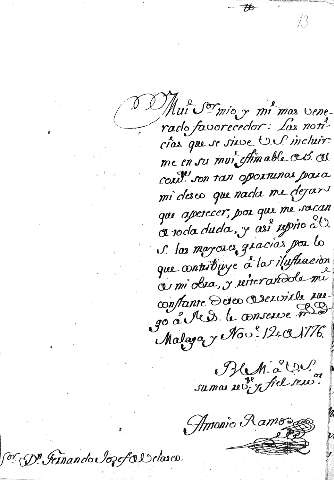 13
Mui Sor mio y mi mas vene
rado favorecedor: Las noti
cias que se sirve V.S. incluir
me en su mui estimable de 6. de
corrte son tan oportunas para
mi deseo que nada me dejan
que apetecer, por que me sacan
de toda duda, y asi repito à V.
S. las mayores gracias por lo
que contribuye à las ilustracion
de mi obra, y reiterandole mi
constante deseo de servirle rue
go à N. S. le conserve
Malaga y Nove 12 de 1776.
B L M. à V.S.
su mas revte y fiel servor
Antonio Ramos
Sor Dn Fernando Jozef de Velasco